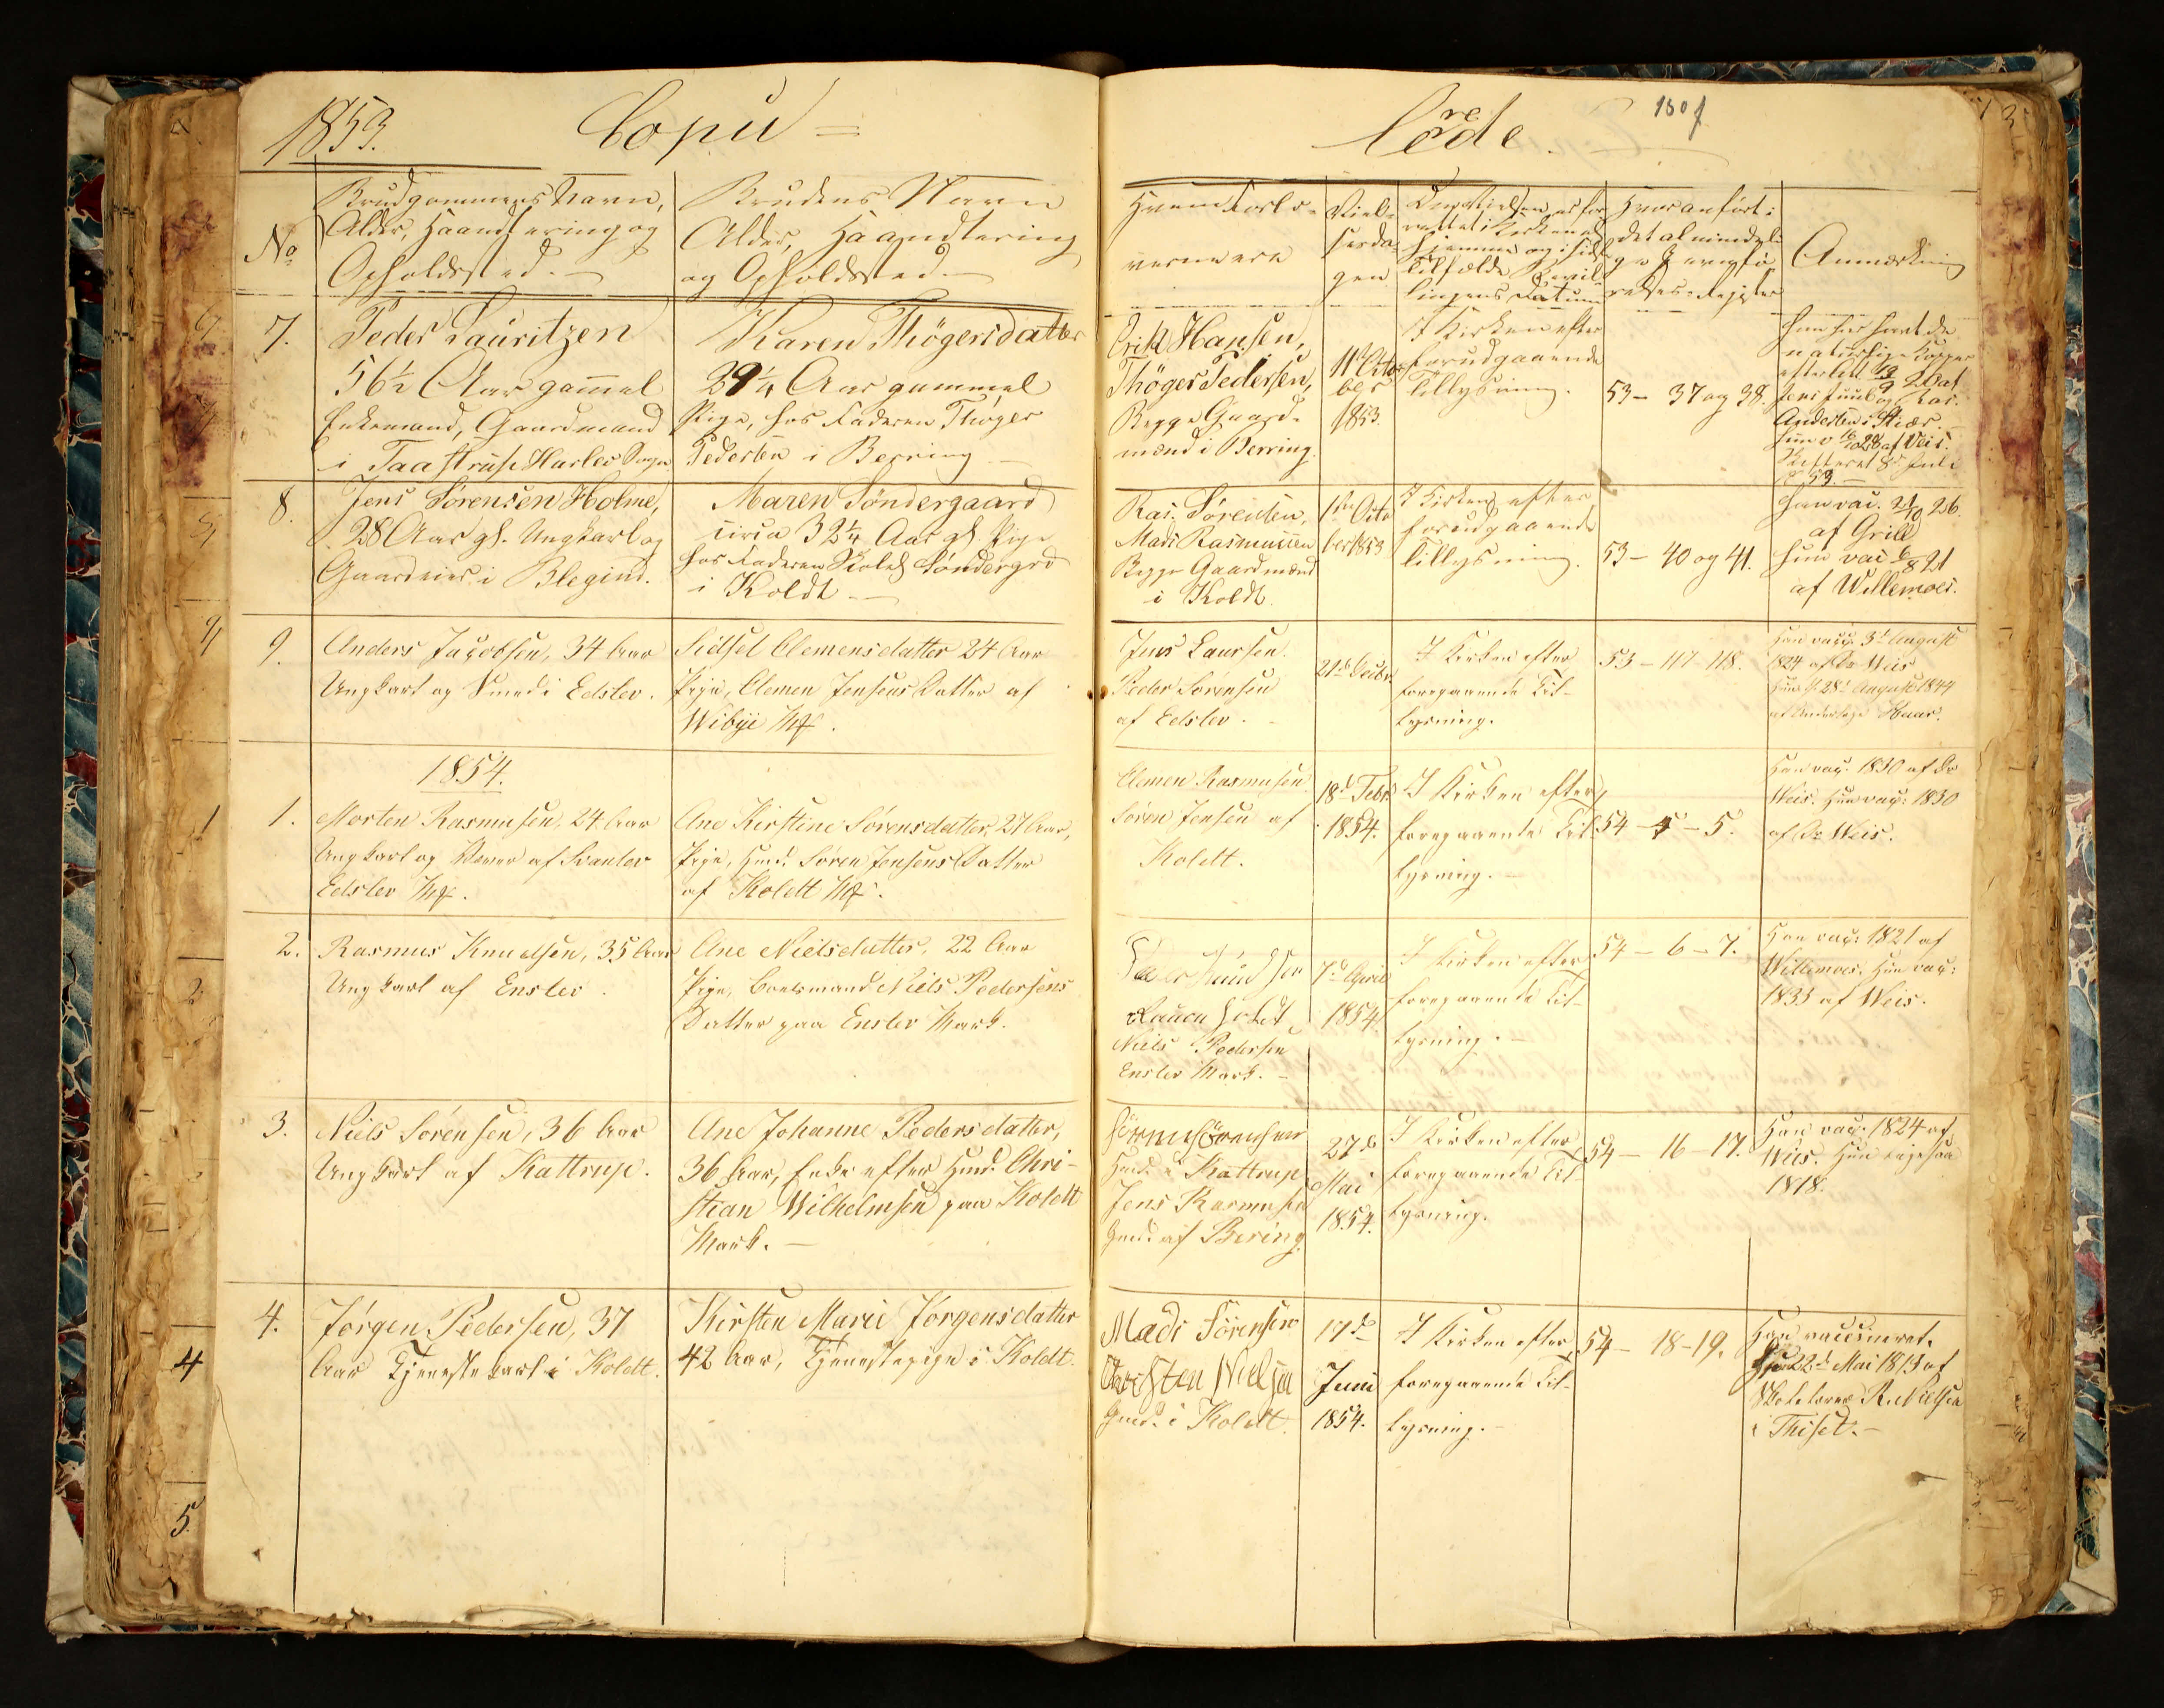 1853.
Copu =
lerede.
150 f
No
Brudgommens Navn,
Alder, Haandtering og
Opholdssted. —
Brudens Navn
Alder, Haandtering
og Opholdssted —
Hvem Forlo-
verne ere
Viel-
sesda-
gen
Om Vielsen er for-
rettet i Kirken el.
hjemme og i sidste
Tilfælde Bevil-
lingens Datum
Hvor anført i
det almindeli-
ge Jevnfø-
relses-Register
Anmærkning
7.
Peder Lauritzen
56½ Aar gammel
Enkemand, Gaardmand
i Taastrup Harlev Sogn
Karen Thögersdatter
29¼ Aar gammel
Pige, hos Faderen Thöger
Pedersen i Berring —
Erik Hansen,
Thöger Pedersen,
Begge Gaard-
mænd i Berring.
11te Octo
ber
1853.
I Kirken efter
forudgaaende
Tillysning.
53 – 37 og 38.
Han har havt de
naturlige Kopper
efter
Jens Juul og
Andersen i Stiær.
Hun v af Weis
8de Juli
53. —
8.
Jens Sörensen Holme,
28 Aar gl. Ungkarl og
Gaardeier i Blegind.
Maren Söndergaard
circa 32¼ Aar gl. Pige
hos Faderen Söndergrd
i Koldt —
Ras. Sörensen,
Mads Rasmussen
Begge Gaardmænd
i Koldt.
Octo
ber 1853
I Kirken efter
forudgaaende
Tillysning.
53 – 40 og 41.
Han vac. 21/10 26.
af Grill
Hun vac 6/8 21
af Willemoes.
9.
Anders Jacobsen, 34 Aar
Ungkarl og Smed i Edslev.
Sidsel Clemensdatter 24 Aar
Pige, Clemen Jensens Datter af
Wibye
Jens Laursen.
Peder Sörensen
af Edslev. –
21de Decbr.
I Kirken efter
foregaaende Til-
lysning.
53 – 117 118.
Han vacc. 3d August
1824 af Dr Weis
Hun d. 28d August 1844
af Underlæge Haar.
1854.
1.
Morten Rasmusen, 24 Aar
Ungkarl og Væver af Svanlev
Edslev
Ane Kirstine Sörensdatter, 27 Aar,
Pige, Hmd. Sören Jensens Datter
af Koldt
Clemen Rasmusen.
Sören Jensen af
Koldt.
18d Febr.
1854.
I Kirken efter
foregaaende Til-
lysning. –
54 – 4 – 5.
Han vac. 1830 af Dr
Weis. Hun vac: 1830
af Dr Weis.
2.
Rasmus Knudsen, 35 Aar
Ungkarl af Enslev.
Ane Nielsdatter, 22 Aar
Pige, Boelsmand Niels Pedersens
Datter paa Enslev Mark.
Niels Pedersen
Enslev Mark. –
7d April
1854.
I Kirken efter
foregaaende Til-
lysning. –
54 – 6 – 7.
Han vac: 1821 af
Willemoes. Hun vac:
1833 af Weis.
3.
Niels Sörensen, 36 Aar
Ungkarl af Kattrup.
Ane Johanne Pedersdatter,
36 Aar, Enke efter Hmd. Chri-
stian Wilhelmsen paa Koldt
Mark. —
Hmd. i Kattrup
Jens Rasmusen
Gmd. af Bering
27de
Mai
1854.
I Kirken efter
foregaaende Til-
lysning.
54 – 16 – 17.
Han vac. 1824 af
Weis. Hun ligesaa
1818.
4.
Jörgen Pedersen, 37
Aar Tjenestekarl i Koldt.
Kirsten Marie Jörgensdatter
42 Aar, Tjenestepige i Koldt.
Mads Sörensen
Carsten Nielsen
Gmd. i Koldt.
17de
Juni
1854.
I Kirken efter
foregaaende Til-
lysning. –
54 – 18 – 19.
Han vaccineret.
Hun 22d Mai 1813 af
Skolelærer R. Nielsen
i Thiset. –